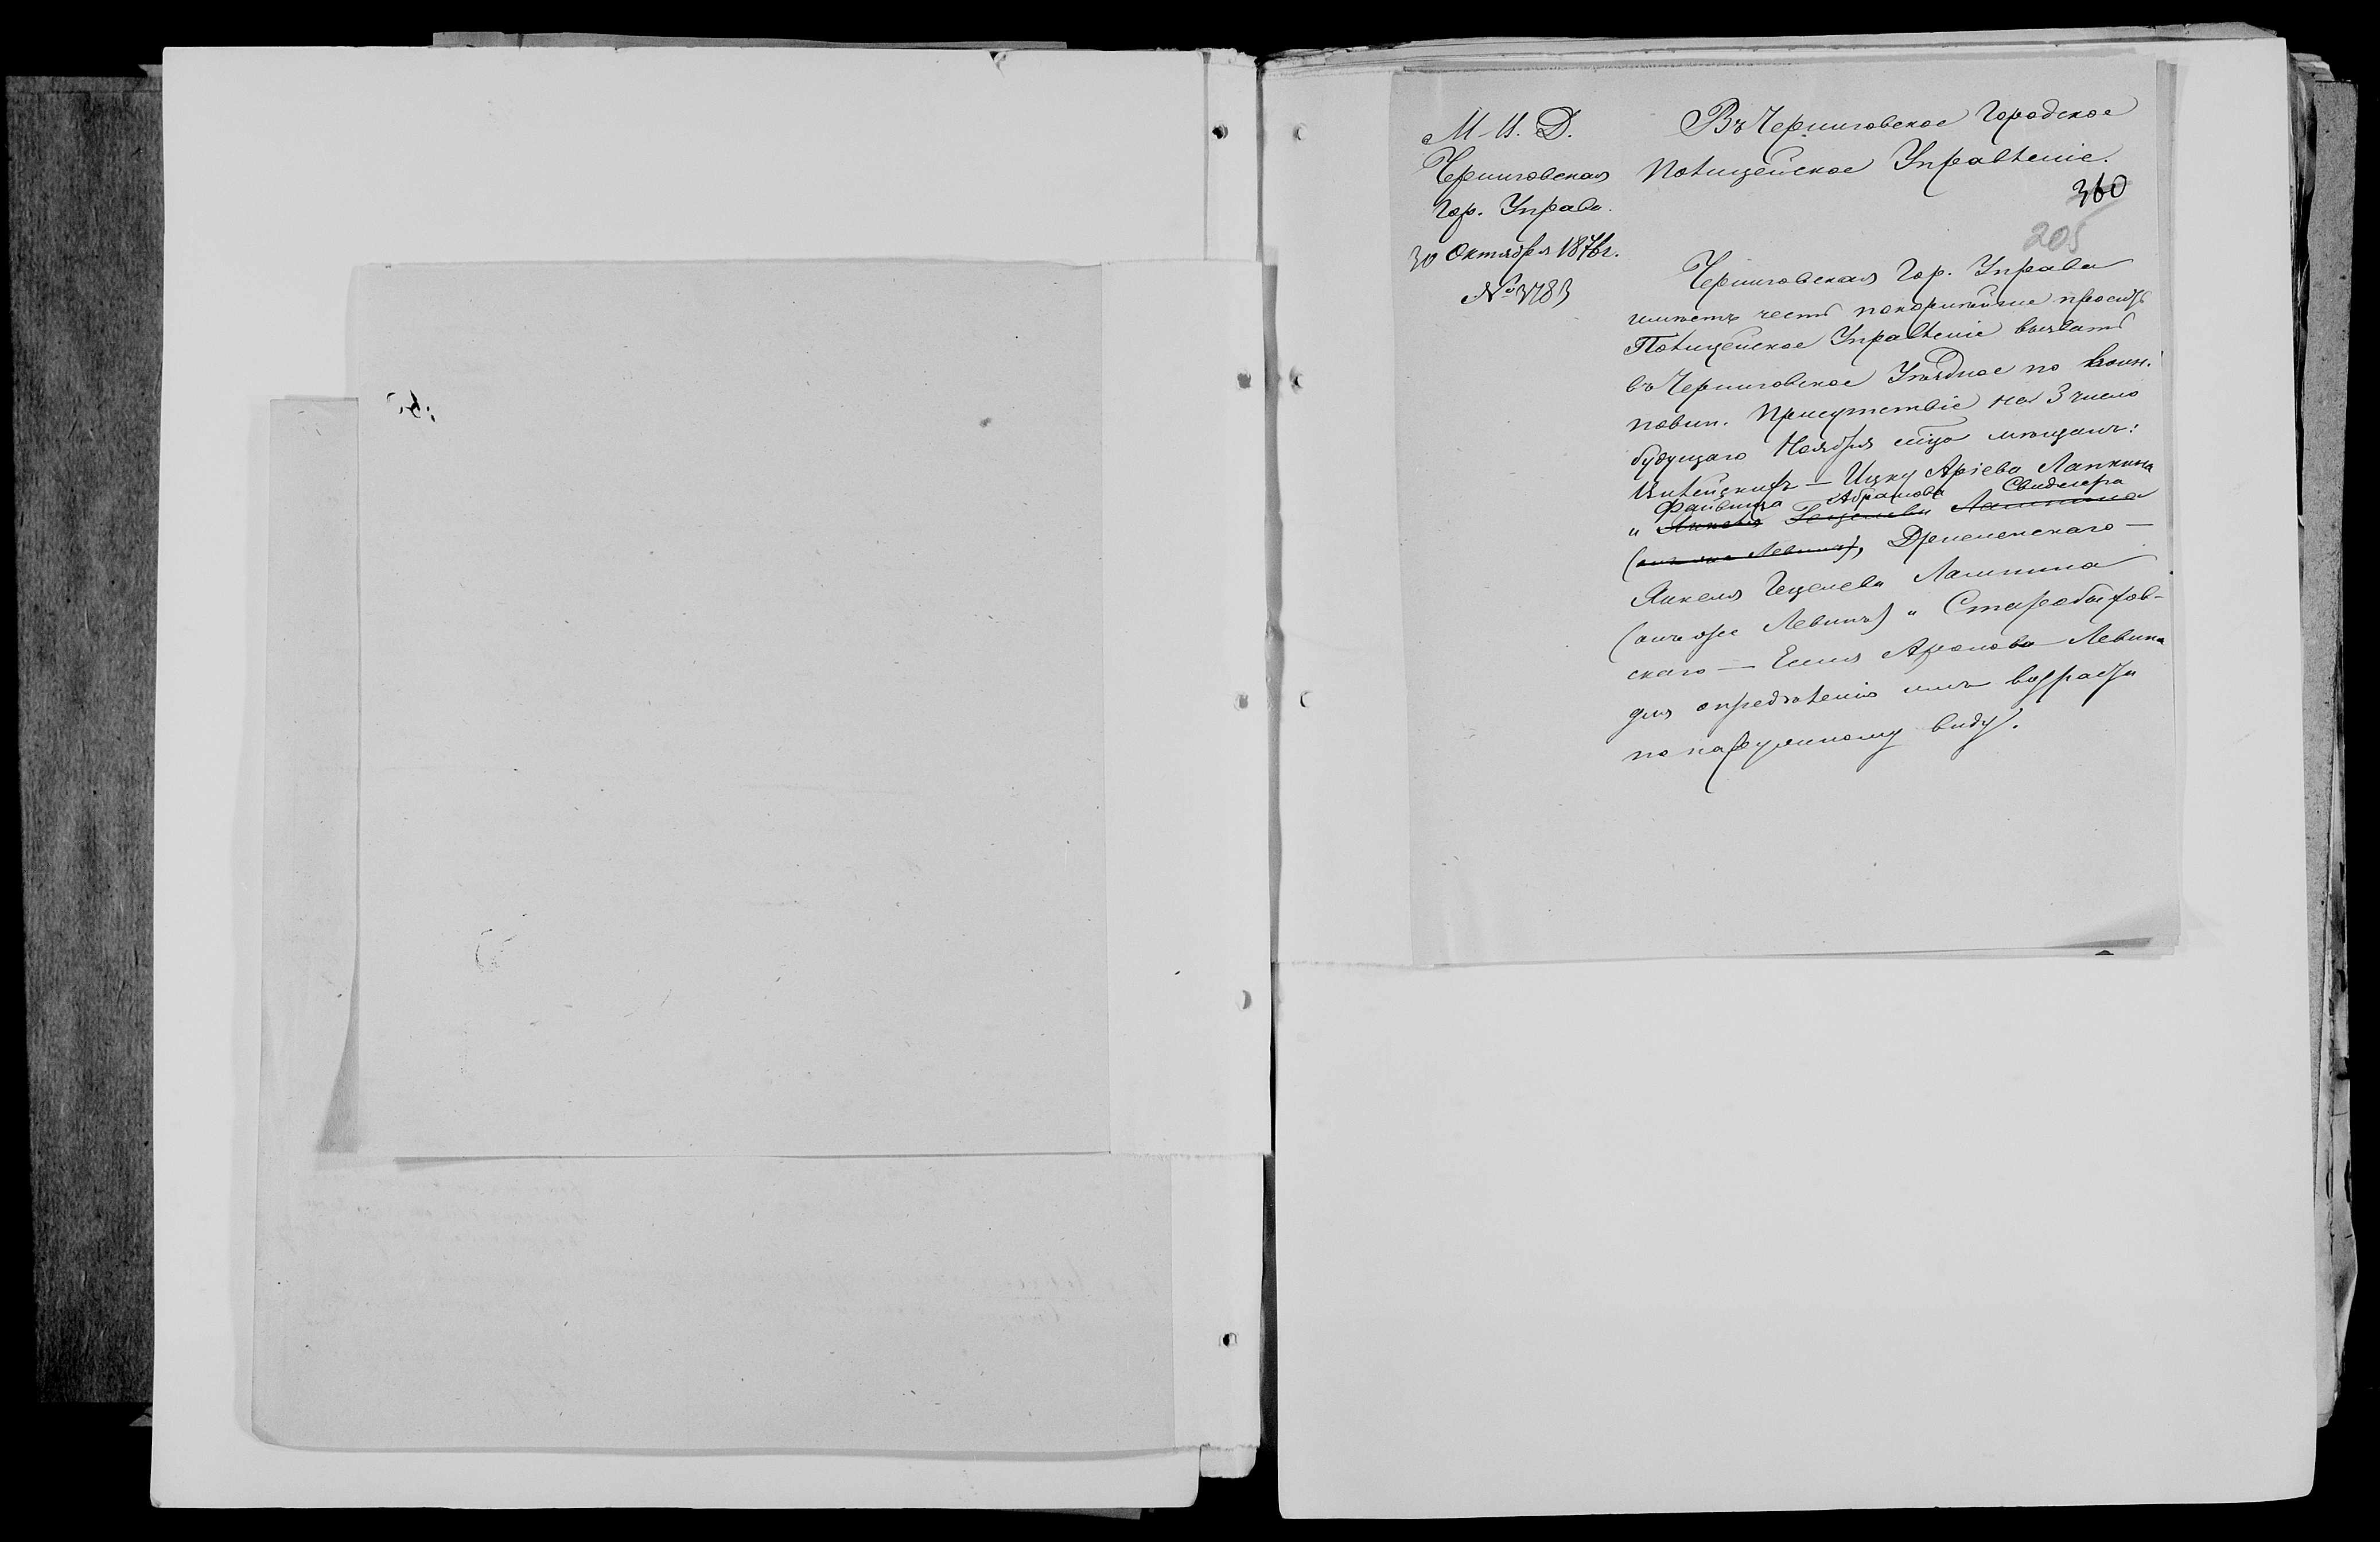 М. И. Д.
Черниговская
Гор. Управа.
30 Октября 1876 г.
№ 3783
Въ Черниговское Городское
Полицейское Управленіе.
360
205
Черниговская Гор. Управа
имѣетъ честь покорнѣйше проситъ
Полицейское Управленіе вызвать
въ Черниговское Уѣздное по воин.
повин. Присутствіе на 3 число
будущаго Ноября мѣщанъ:
Ицку Аріева Лапкина
Файвиша Абрамова Свидлера
и Янкеля Гецелева Лапкина
(онъ же Левинъ),
Янкеля Гецелева Лапкина
(онъ же Левинъ) и Старобыхов-
скаго — Аронова Левина
для опредѣленія имъ возраста
по наружному виду.